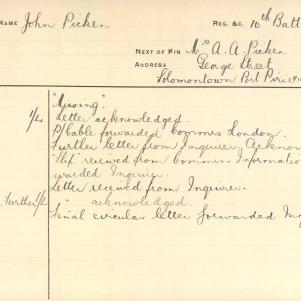 NAME John Picken REG. &C. 10th Batt
NEXT OF KIN Mrs A. A. Picken
ADDRESS George Street
Solomontown Port Pirie
"Missing".
1/4 Letter acknowledged.
P/Cable forwarded Commrs London.
Further letter from Inquirer. Acknow
received from Commr. Information
warded Inquirer.
Letter received from Inquirer.
Further 1/4 " acknowledged.
Final circular letter forwarded